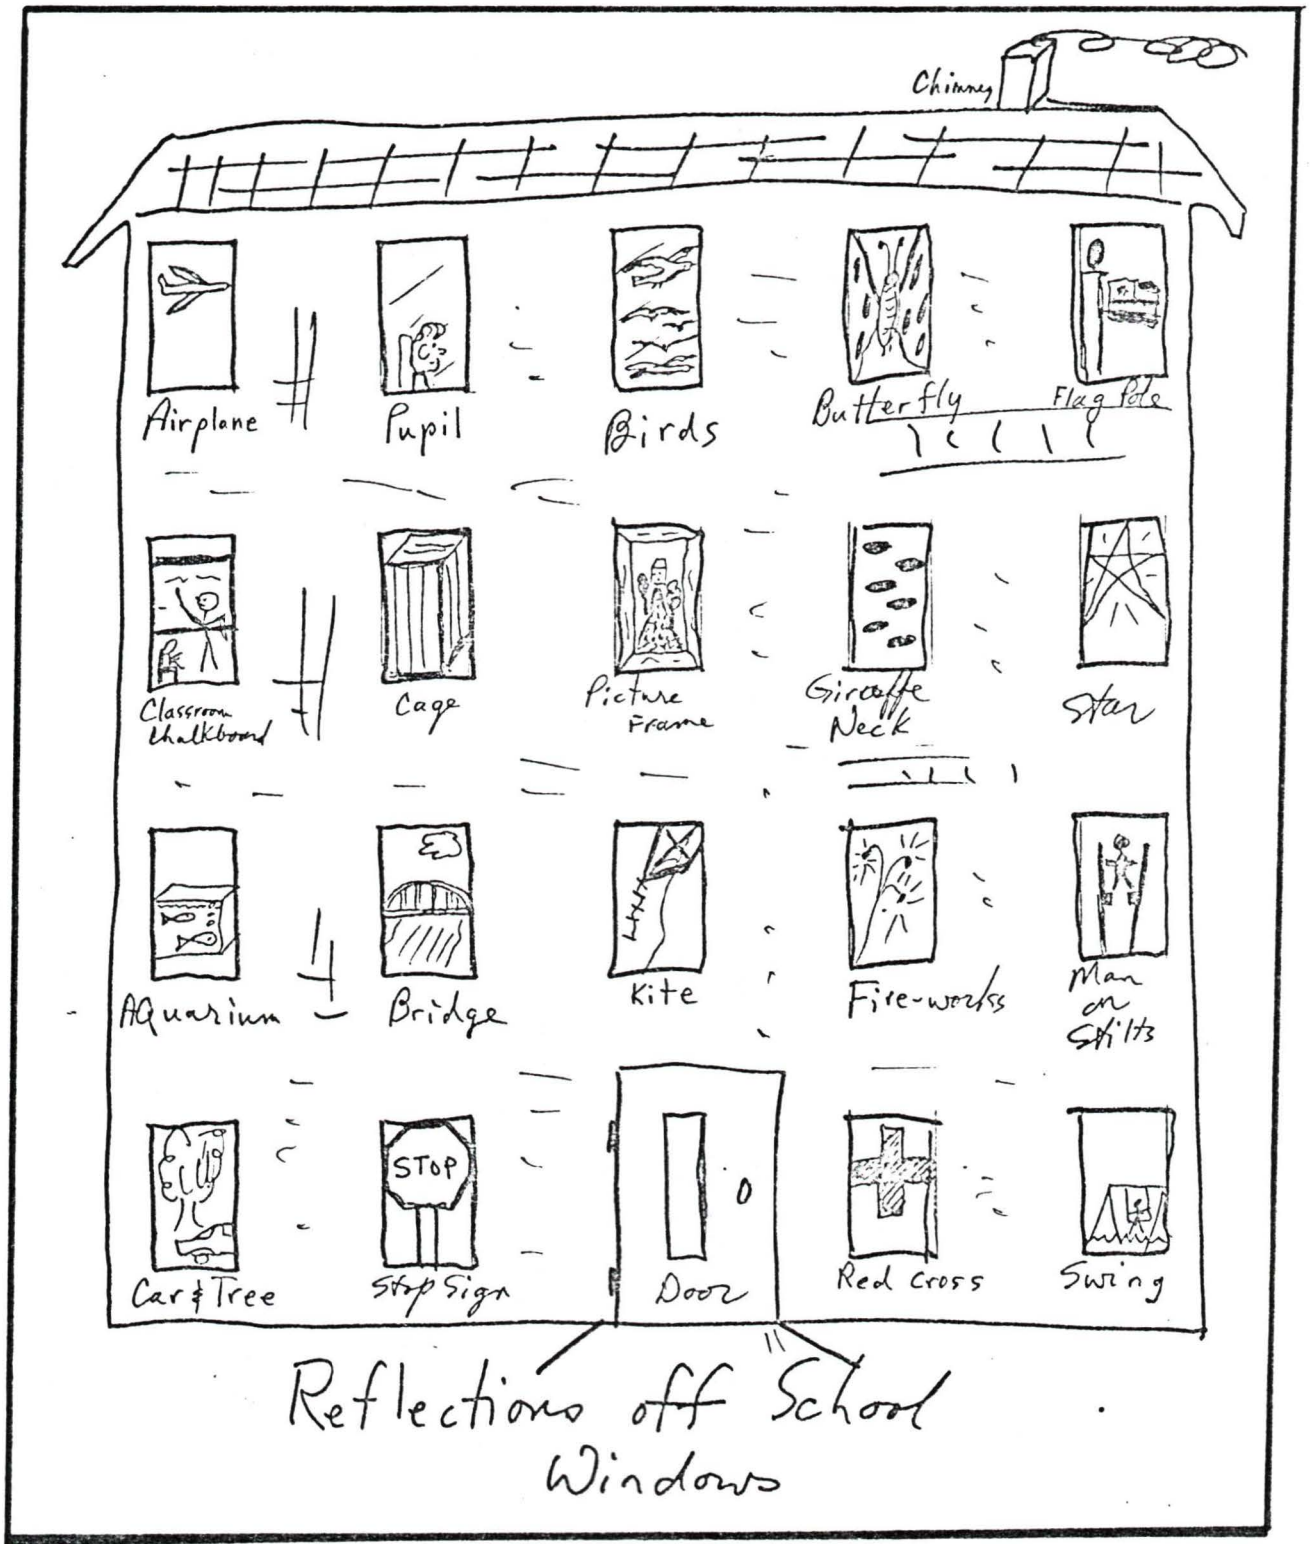 Chimney
Airplane
Pupil
Birds
Butterfly
Flag Pole
Classroom
Chalkboard
Cage
Picture
Frame
Giraffe
Neck
Star
AQuarium
Bridge
Kite
Fire-works
Man
on
Stilts
STOP
Car & Tree
Stop Sign
Door
Red Cross
Swing
Reflections off School
Windows